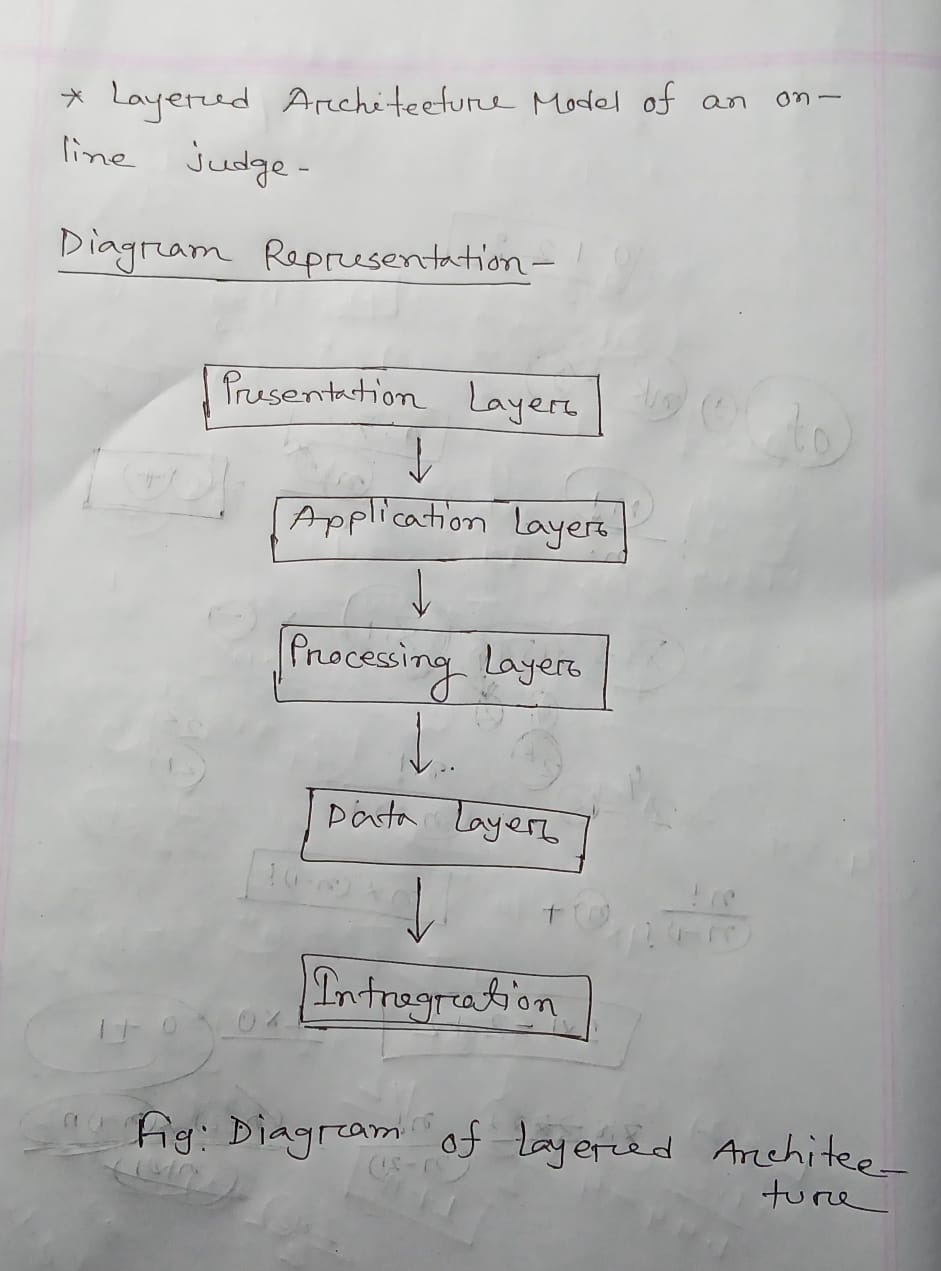 * Layered Architecture Model of an on-
line judge -
Diagram Representation -
Presentation Layer
Application Layer
Processing Layer
Data Layer
Intregration
Fig: Diagram of Layered Architec-
ture